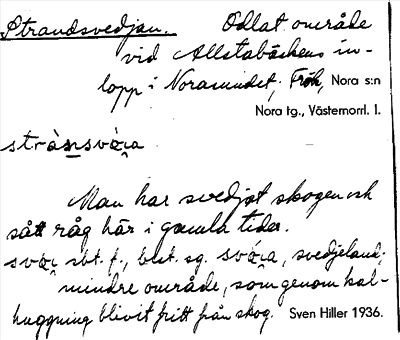 Strandsvedjan. Odlat område
vid Allstabäckens in-
lopp i Norasundet, Fröh, Nora s:n
Nora tg., Västernorrl. l.
strànsvǫ́a
Man har svedjat skogen och
sått råg här i gamla tider.
svǫ́ sbt. f., best. sg. svǫ́a, svedjeland;
mindre område, som genom kal-
huggning blivit fritt från skog. Sven Hiller 1936.